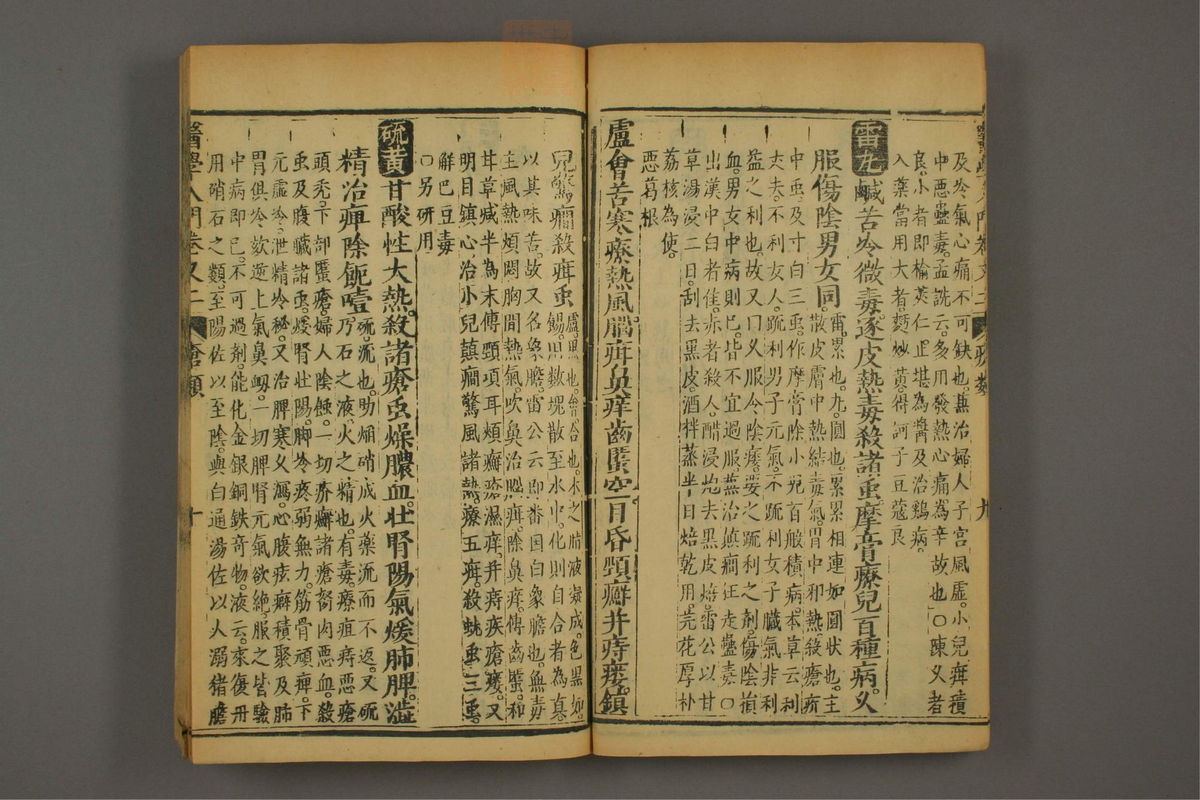 醫學入門卷之二 瘡類 九
及冷氣心痛不可缺也兼治婦人子宮風虛小兒疳積
中惡蠱毒孟詵云多用發熱心痛為辛故也○陳久者
良小者即榆莢仁止堪為醬及治雞病
入藥當用大者麸炒黃得訶子豆蔻良
雷丸鹹苦冷微毒逐皮熱毒殺諸䖝摩膏療兒百種病久
服傷陰男女同
雷累也丸圓也累累相連如圓狀也主
散皮膚中熱結毒氣胃中邪熱殺瘡疥
中䖝及寸白三䖝作摩膏除小兒百般積病本草云利
丈夫不利女人疏利男子元氣不疏利女子臟氣非利
益之利也故又曰久服令陰痿要之疏利之劑傷陰損
血男女中病則已皆不宜過服兼治顛癇狂走蠱毒○
出漢中白者佳赤者殺人醋浸炮去黑皮焙雷公以甘
草湯浸二日刮去黑皮酒拌蒸半日焙乾用芫花厚朴
荔核為使
惡葛根
盧會苦寒療熱風腦疳鼻痒齒䘌空目昏頸癬并痔瘻鎮
兒驚癎殺疳䖝
盧黑也會合也木之脂液凝成色黑如
錫用數塊散至水中化則自合者為真
以其味苦故又名象膽雷公云即番国白象膽也無毒
主風熱煩悶胸間熱氣吹鼻治腦疳除鼻痒傅齒䘌和
甘草減半為末傅頸項耳頰癬瘡濕痒并痔疾瘡瘻又
明目鎮心治小兒蘋癎驚風諸熱療五疳殺蚘䖝三䖝
解巴豆毒
○另研用
硫黃甘酸性大熱殺諸瘡䖝燥膿血壯腎陽氣煖肺脾澁
精冷痺除飽噎
硫流也助焰硝成火藥流而不返又硫
乃石之液火之精也有毒療疽痔惡瘡
頭禿下部䘌瘡婦人陰蝕一切疥癬諸瘡努肉惡血殺
䖝及腹臟諸䖝煖腎壯陽脚冷疼弱無力筋骨頑痺下
元虛冷泄精冷秘又治脾寒久瀉心腹痃癖積聚及肺
胃俱冷欬逆上氣鼻衂一切脾腎元氣欲絕服之皆驗
中病即已不可過劑能化金銀銅鉄奇物液云來復丹
用硝石之類至陽佐以至陰與白通湯佐以人溺猪膽
醫學入門卷又二 瘡類 十